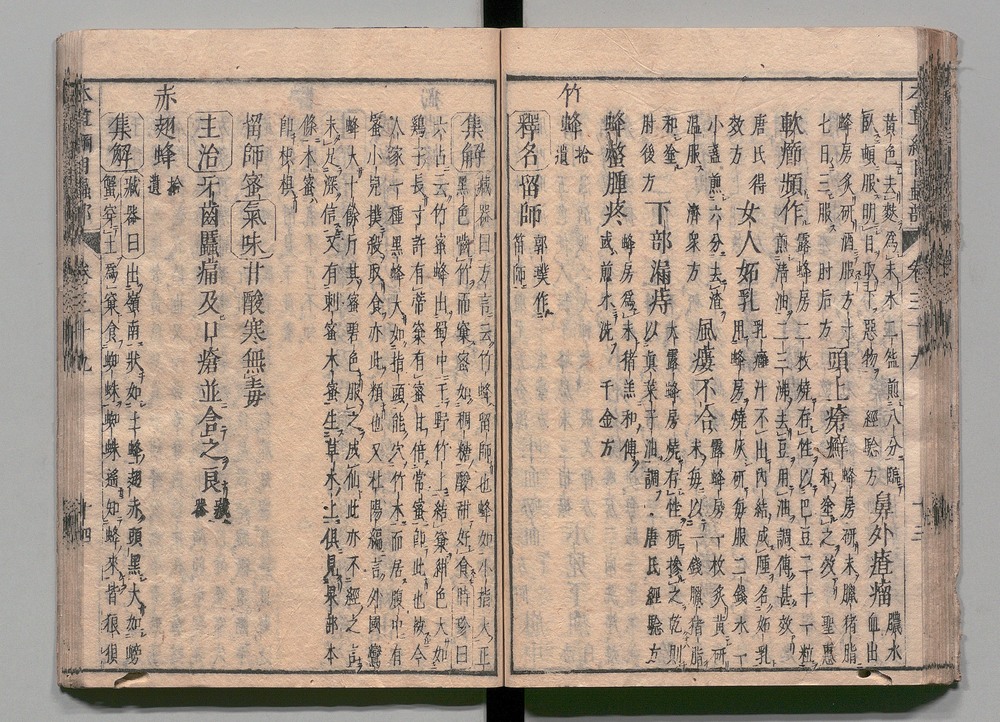 黃色去麩爲末水一盌煎八分臨
臥頓服明日取下惡物 經驗方 鼻外瘡瘤 膿水血出
蜂房炙研酒服方寸 頭上瘡癬 蜂房研末臘猪脂
七日三服 肘后方 和塗之效 聖惠
軟癤頻作 露蜂房二枚燒存性以巴豆二十一粒
煎清油二三沸去豆用油調傅甚效
唐氏得效方 女人妬乳 乳癰汁不出內結成腫名妬乳
蜂房燒灰研每服二錢水一
小盞煎六分去渣溫服 濟衆方 風瘻不合 露蜂房一枚炙黃研
末每以一錢臘猪脂和塗
肘後方 下部漏痔 大露蜂房燒存性研摻之乾則
以真菜子油調 唐氏經驗方
蜂螫腫疼 蜂房爲末猪羔和傅
或煎水洗 千金方
竹蜂 拾遺
釋名 留師 郭璞作笛師
集解 藏器曰方言云竹蜂留師也蜂如小指大正
黑色嚙竹而窠蜜如稠糖酸甜好食時珍曰
六占云竹蜜蜂出蜀中于野竹上結窠紺色大如
鷄子長寸許有蒂窠有蜜甘倍常蜜卽此也按今
人家一種黑蜂大如指頭能穴竹木而居腹中有
蜜小兒撲殺取食亦此類也又杜陽編言外國鸞
蜂大十餘斤其蜜碧色服之成仙此亦不經之言
未足深信又有刺蜜木蜜生草木上俱見果部本
條木蜜
卽枳椇
留師蜜 氣味 甘酸寒無毒
主治 牙齒䘌痛及口瘡並含之良 藏器
赤翅蜂 拾遺
集解 藏器曰出嶺南狀如土蜂翅赤頭黑大如螃
蟹穿土爲窠食蜘蛛蜘蛛遙知蜂來皆狼狽